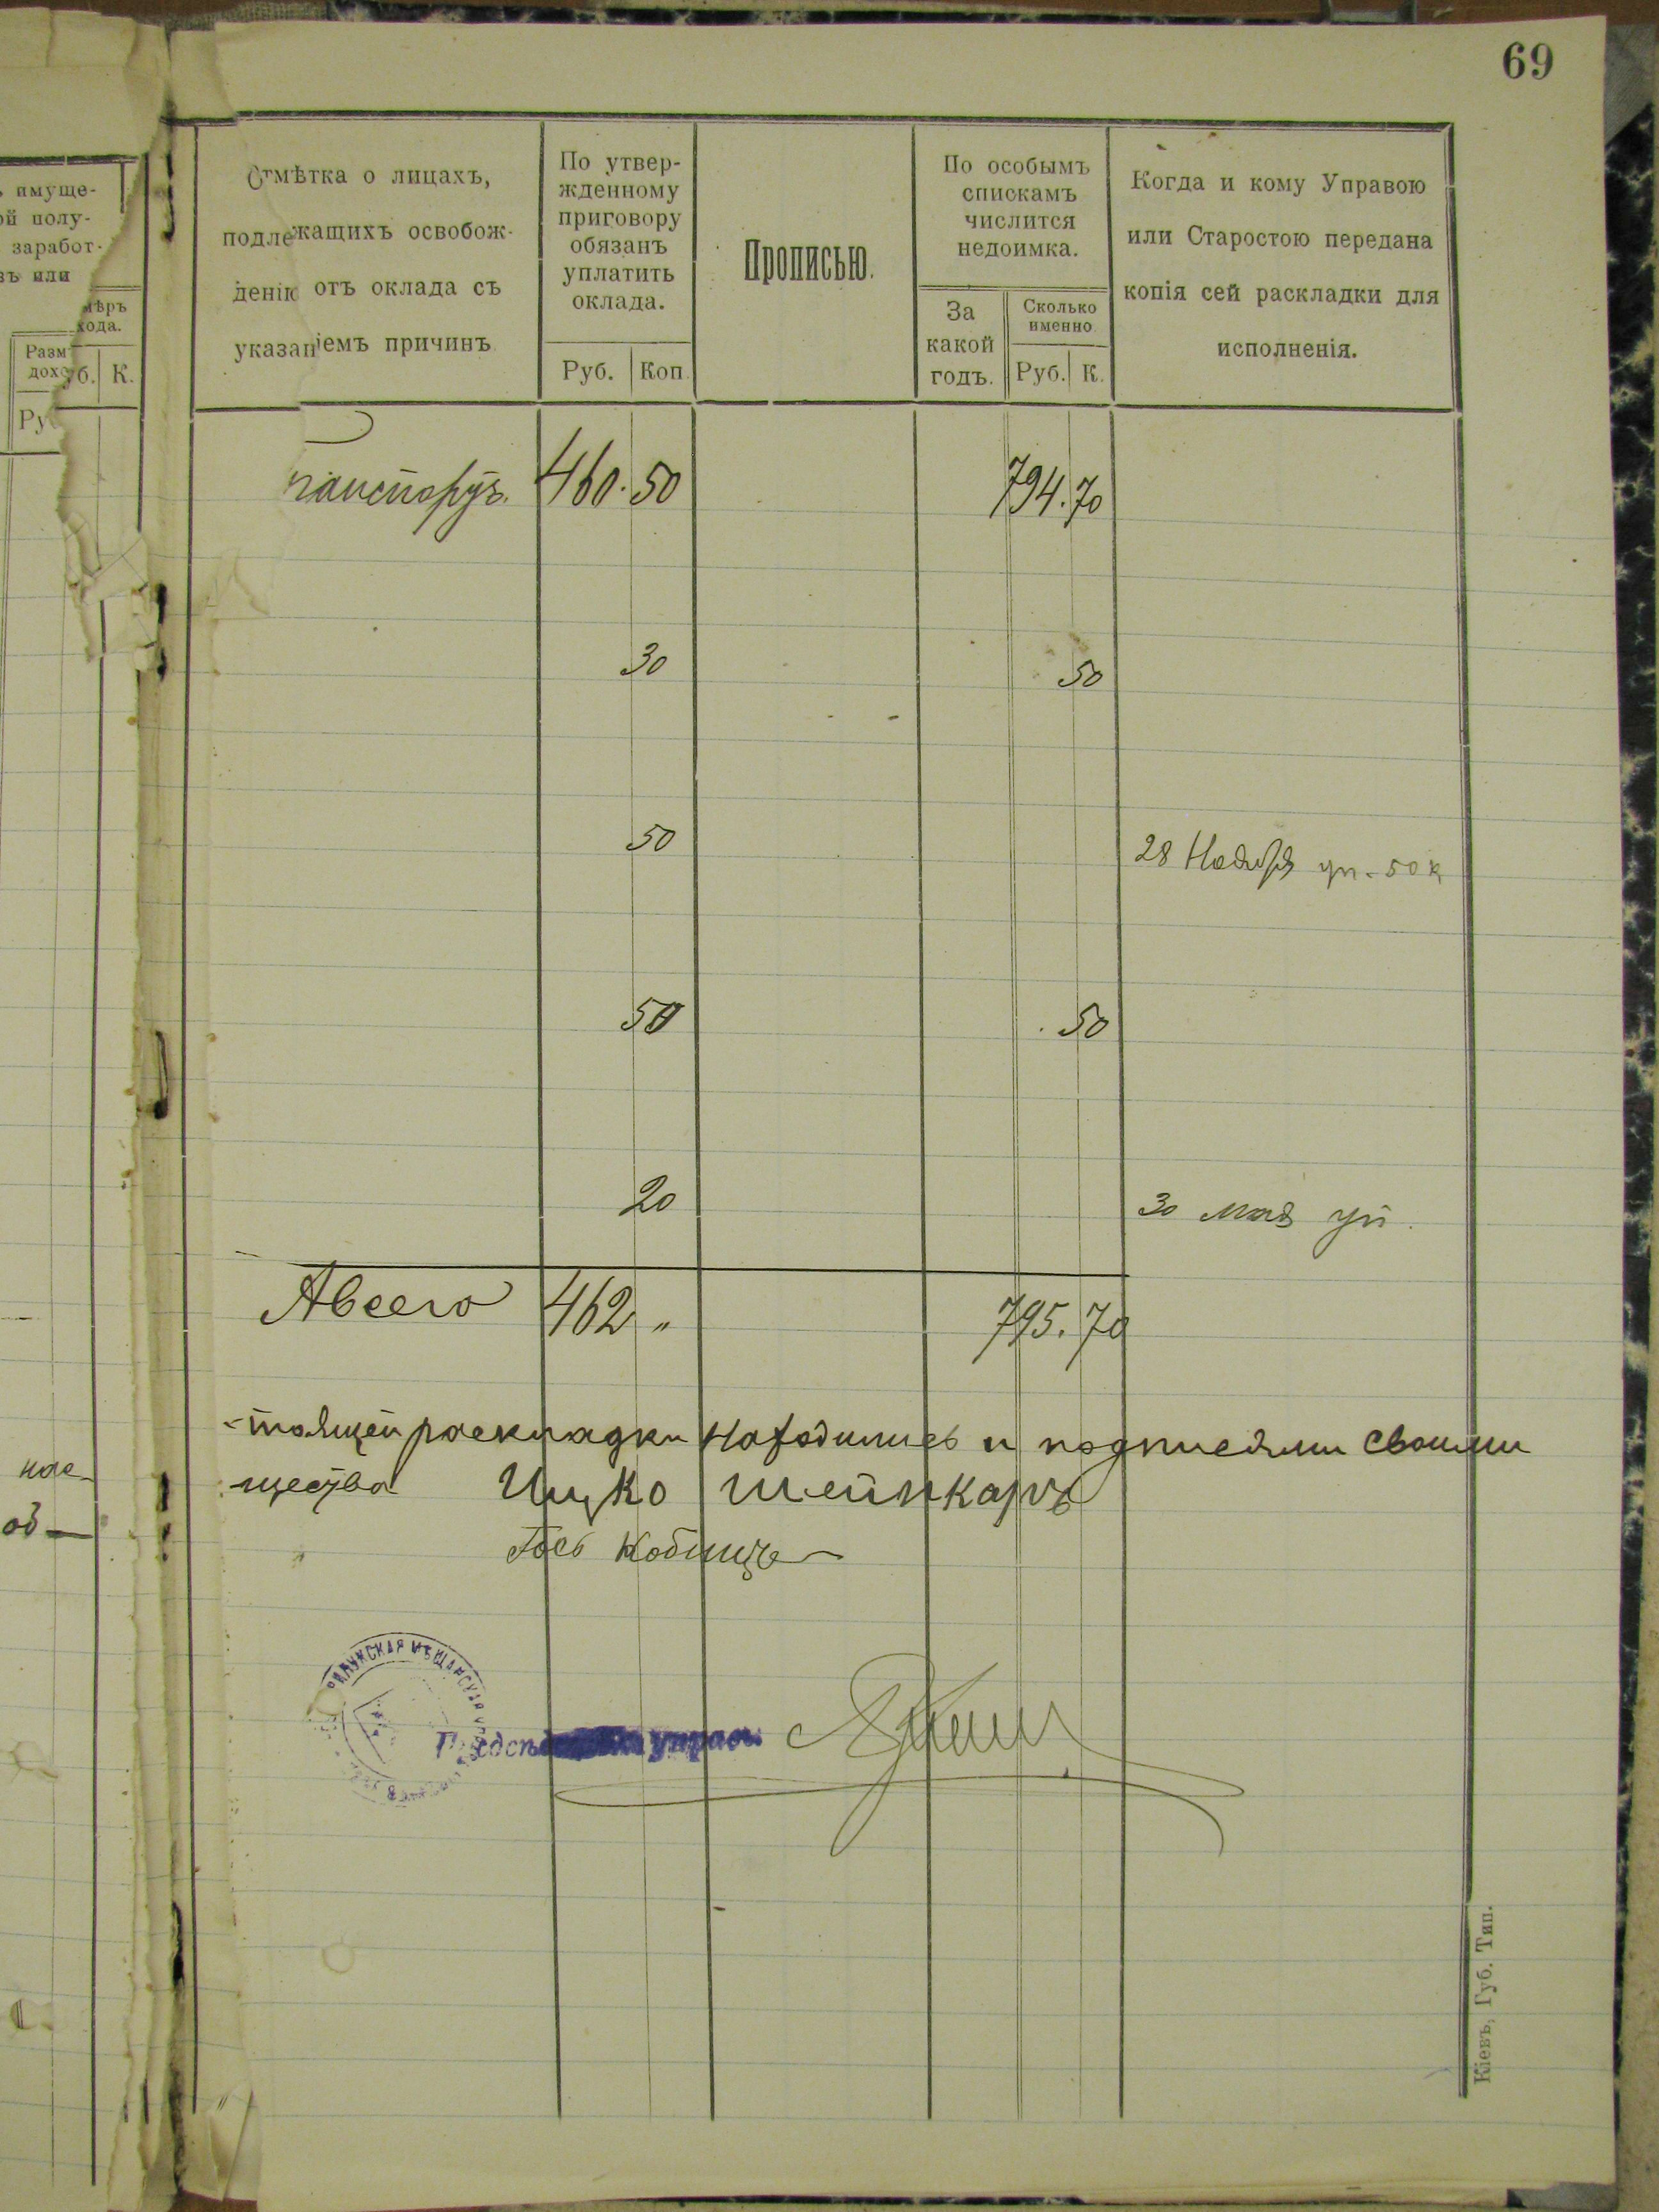 69
ъ имуще-
ой полу-
заработ-
въ или
мѣръ
хода.
Разм
дохо
уб. К.
Ру
Отмѣтка о лицахъ,
подлежащихъ освобож-
денію отъ оклада съ
указаніемъ причинъ
По утвер-
жденному
приговору
обязанъ
уплатить
оклада.
Руб. Коп.
Прописью.
По особымъ
спискамъ
числится
недоимка.
За
какой
годъ.
Сколько
именно
Руб. К.
Когда и кому Управою
или Старостою передана
копія сей раскладки для
исполненія.
ранспортъ. 460. 50 794. 70
30 50
50 28 Ноября уп. 50 к
50 . 50
20 30 Мая уп.
А всего 462 " 795. 70
-тоящей раскладки находились и подписями своими
-щества Ицко Шейнкаръ
нас-
об-
МѢЩАНСКАЯ
управы
Кіевъ, Губ. Тип.